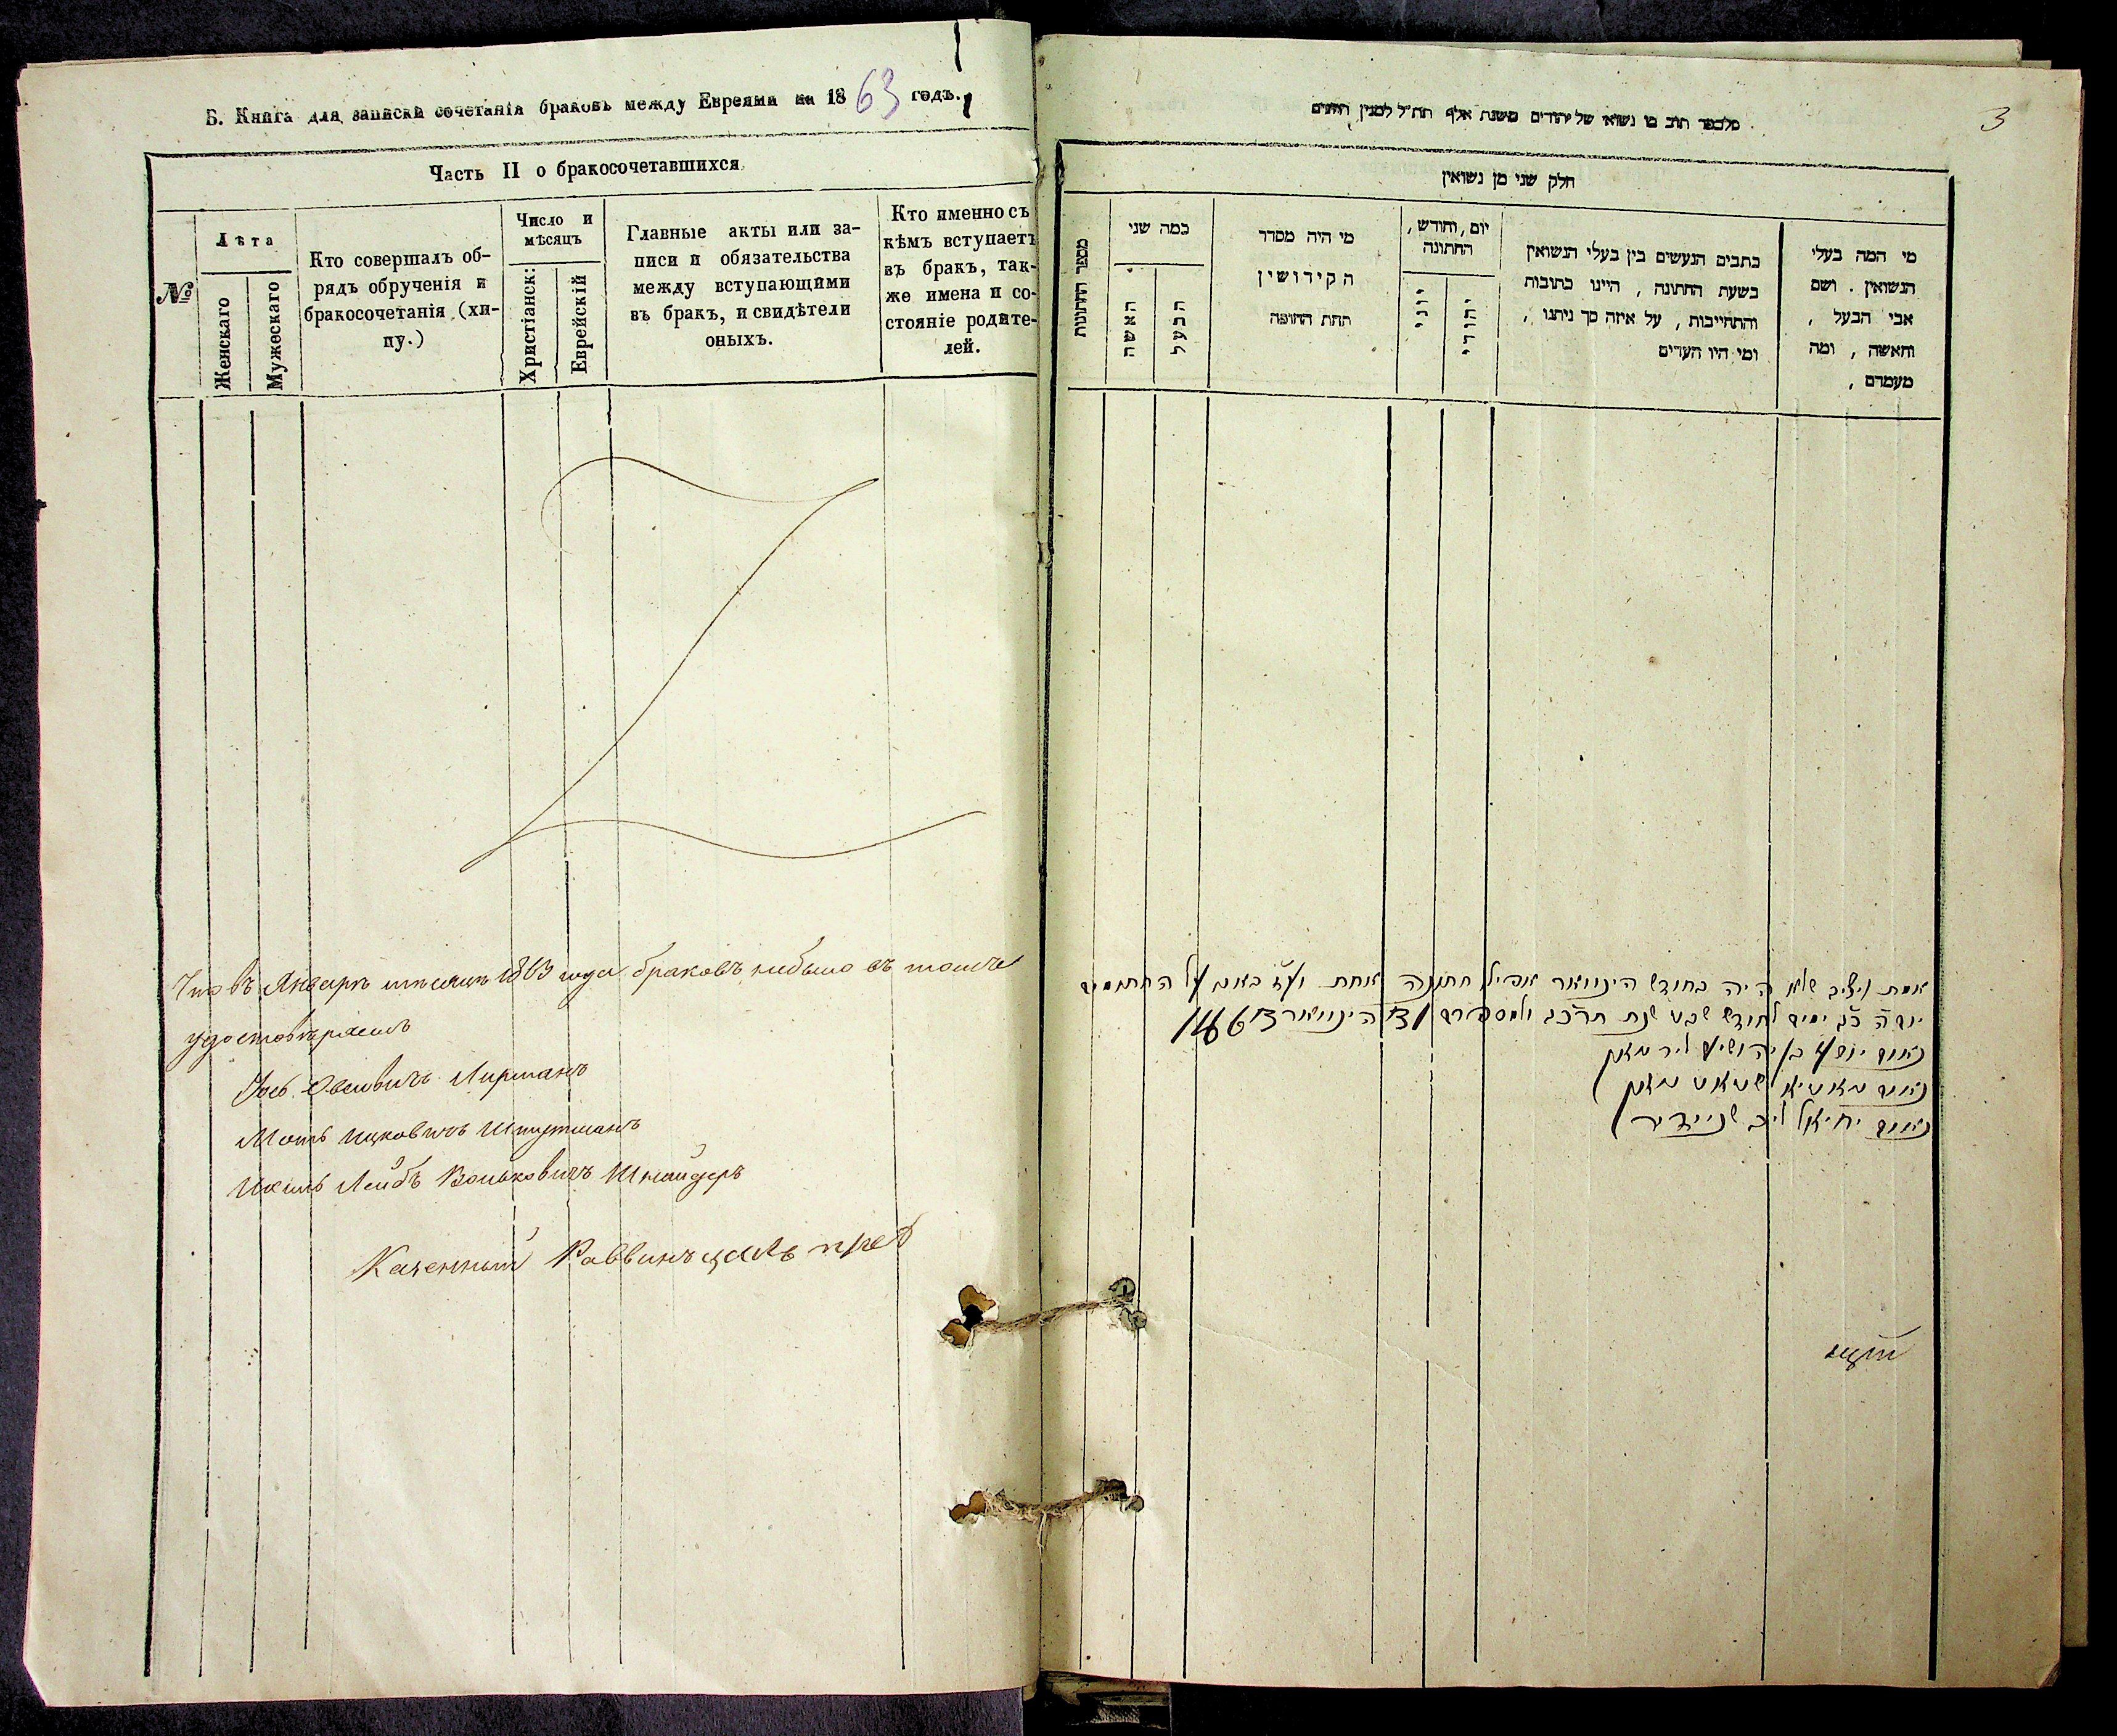 Б. Книга для записки сочетанія браковъ между Евреями на 1863 годъ.
Часть II о бракосочетавшихся
№
Лѣта
Женскаго
Мужескаго
Кто совершалъ об-
рядъ обрученія и
бракосочетанія (хи-
пу.)
Число и
мѣсяцъ
Христіанск:
Еврейскій
Главные акты или за-
писи и обязательства
между вступающими
въ бракъ, и свидѣтели
оныхъ.
Кто именно съ
кѣмъ вступаетъ
въ бракъ, так-
же имена и со-
стояніе родите-
лей.
Что въ Январѣ мѣсяцѣ 1863 года браковъ небыло въ томъ
удостовѣряемъ
Іось Овсѣевичъ Лирманъ
Моть Ицковичъ
Ихиль Лейбъ Вольковичъ Шнайдеръ
Казенный Раввинъ
3
של יהודים משנת אלף תת״ל למנין הנוצרים
חלק שני מן נשואין
מספר החתונות
כמה שני
האשה
הבעל
מי היה מסדר
הקידושין
תחת החופה
יום, וחודש,
החתונה
יוני
יהודי
כתבים הנעשים בין בעלי הנשואין
בשעת החתונה, היינו כתובות
והתחייבות, על איזה סך ניתנו,
ומי היו העדים
מי המה בעלי
הנשואין. ושם
אבי הבעל,
והאשה, ומה
מעמדם,
אמת ויציב שלא היה בחודש הינוואר אפילו חתונה אחת וע״ז באנו על החתום
יום ה׳ ימים לחודש שבט שנת תרכ״ג הינוואר
נאום יוסף בן יהושע לירמאן
נאום
נאום יחיאל ליב שניידער